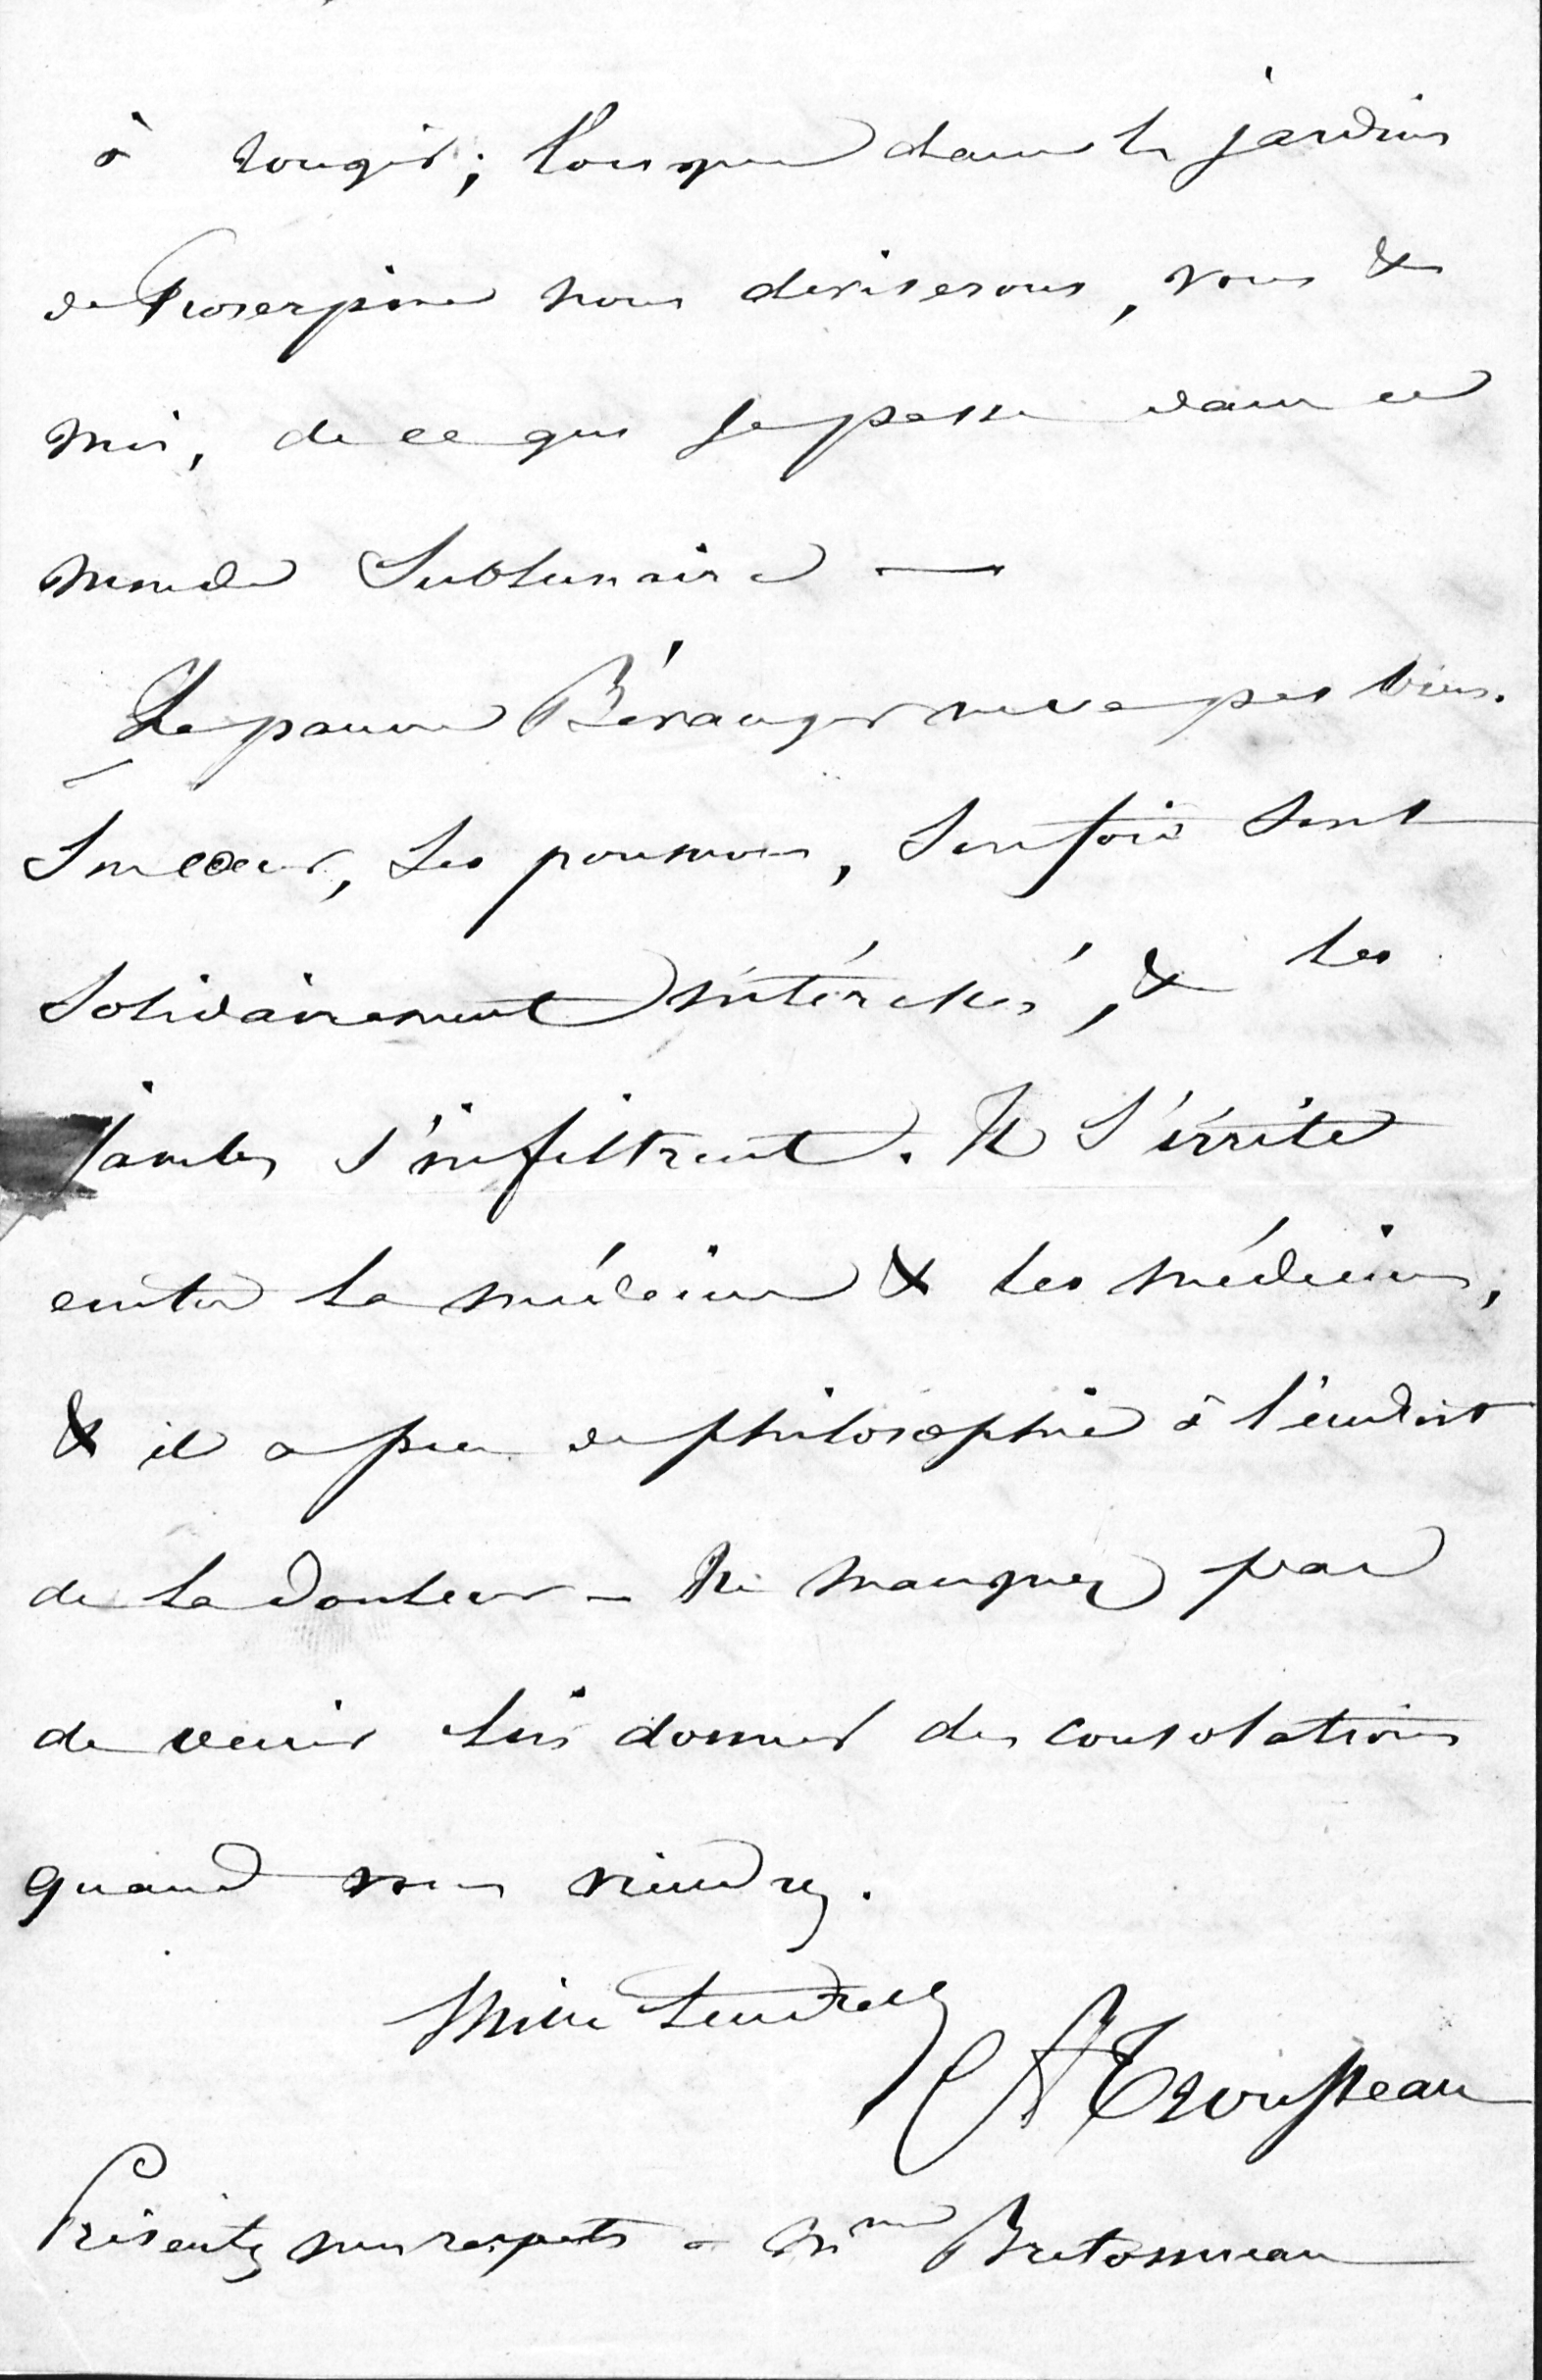 à rougir; lorsque dans les jardins
de Proserpine nous deviserons, vous &
moi, de ce qui se passe dans ce
monde sublunaire —
Le pauvre Béranger ne va pas bien.
Son cœur, ses poumons, son foie sont
solidairement intéressés, & les
jambes s'infiltrent. Il s'irrite
contre la médecine & les médecins,
& il a peu de philosophie à l'endroit
de la douleur – Ne manquez pas
de venir lui donner des consolations
quand vous viendrez.
Mille tendresses
A Trousseau
Présentez mes respects à Mme Bretonneau